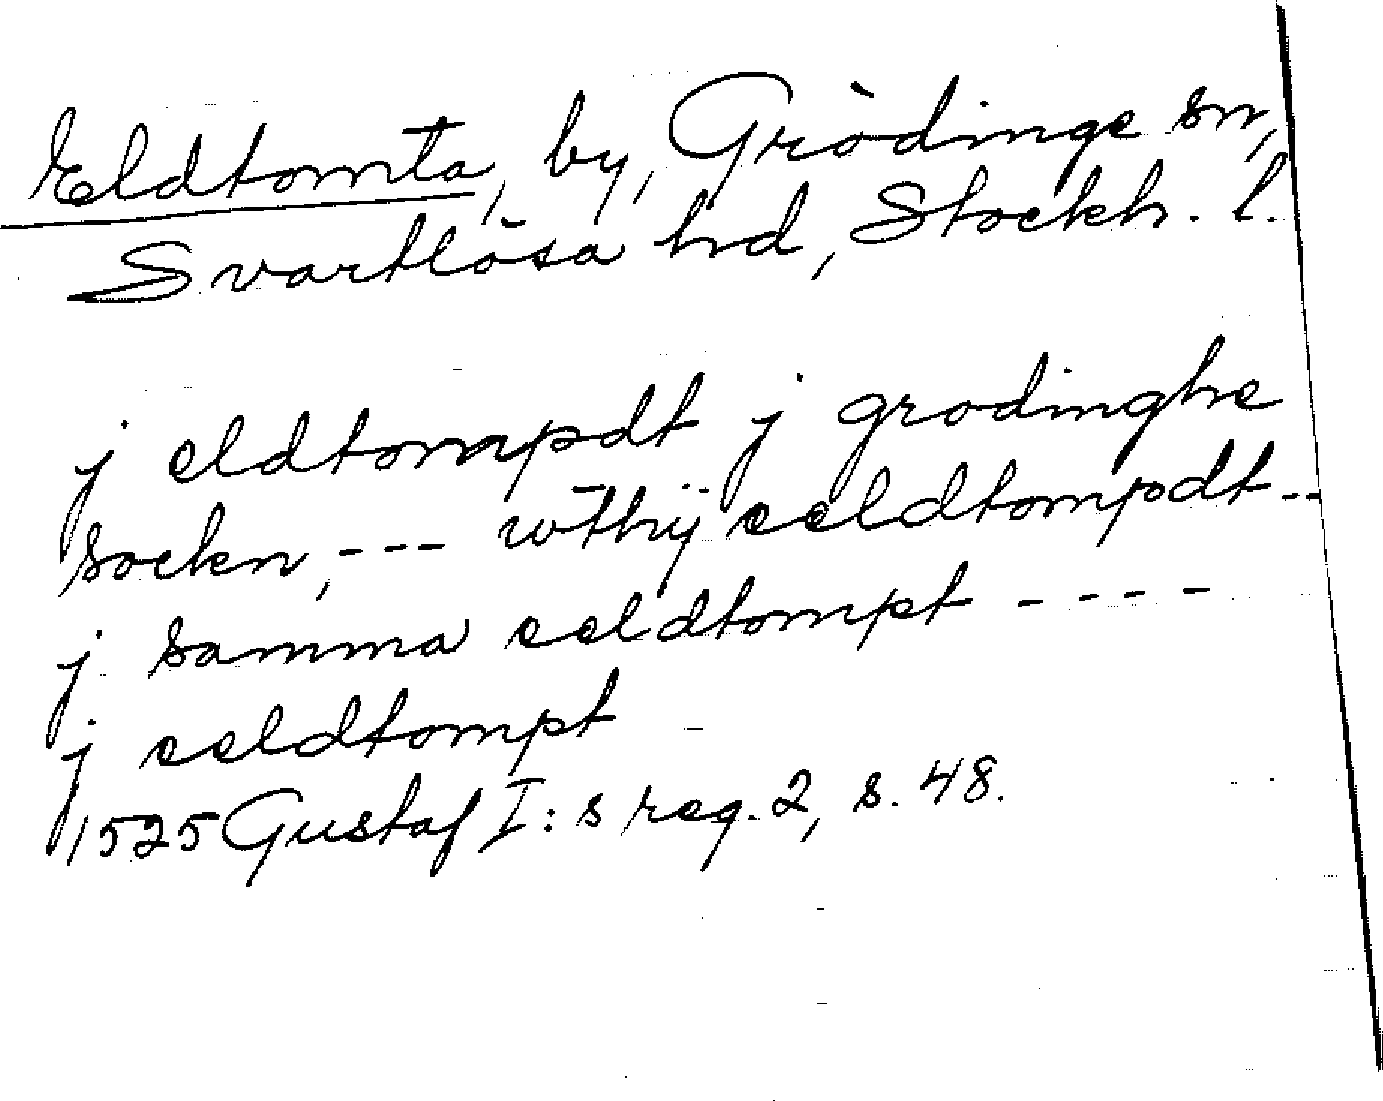 Eldtomta, by, Grödinge sn,
Svartlösa hd, Stockh. l.
j eldtompdt j grodinghe
sockn, --- wthÿ eeldtompdt --
j samma eeldtompt ----
j eeldtompt
1525 Gustaf I:s reg. 2, s. 48.